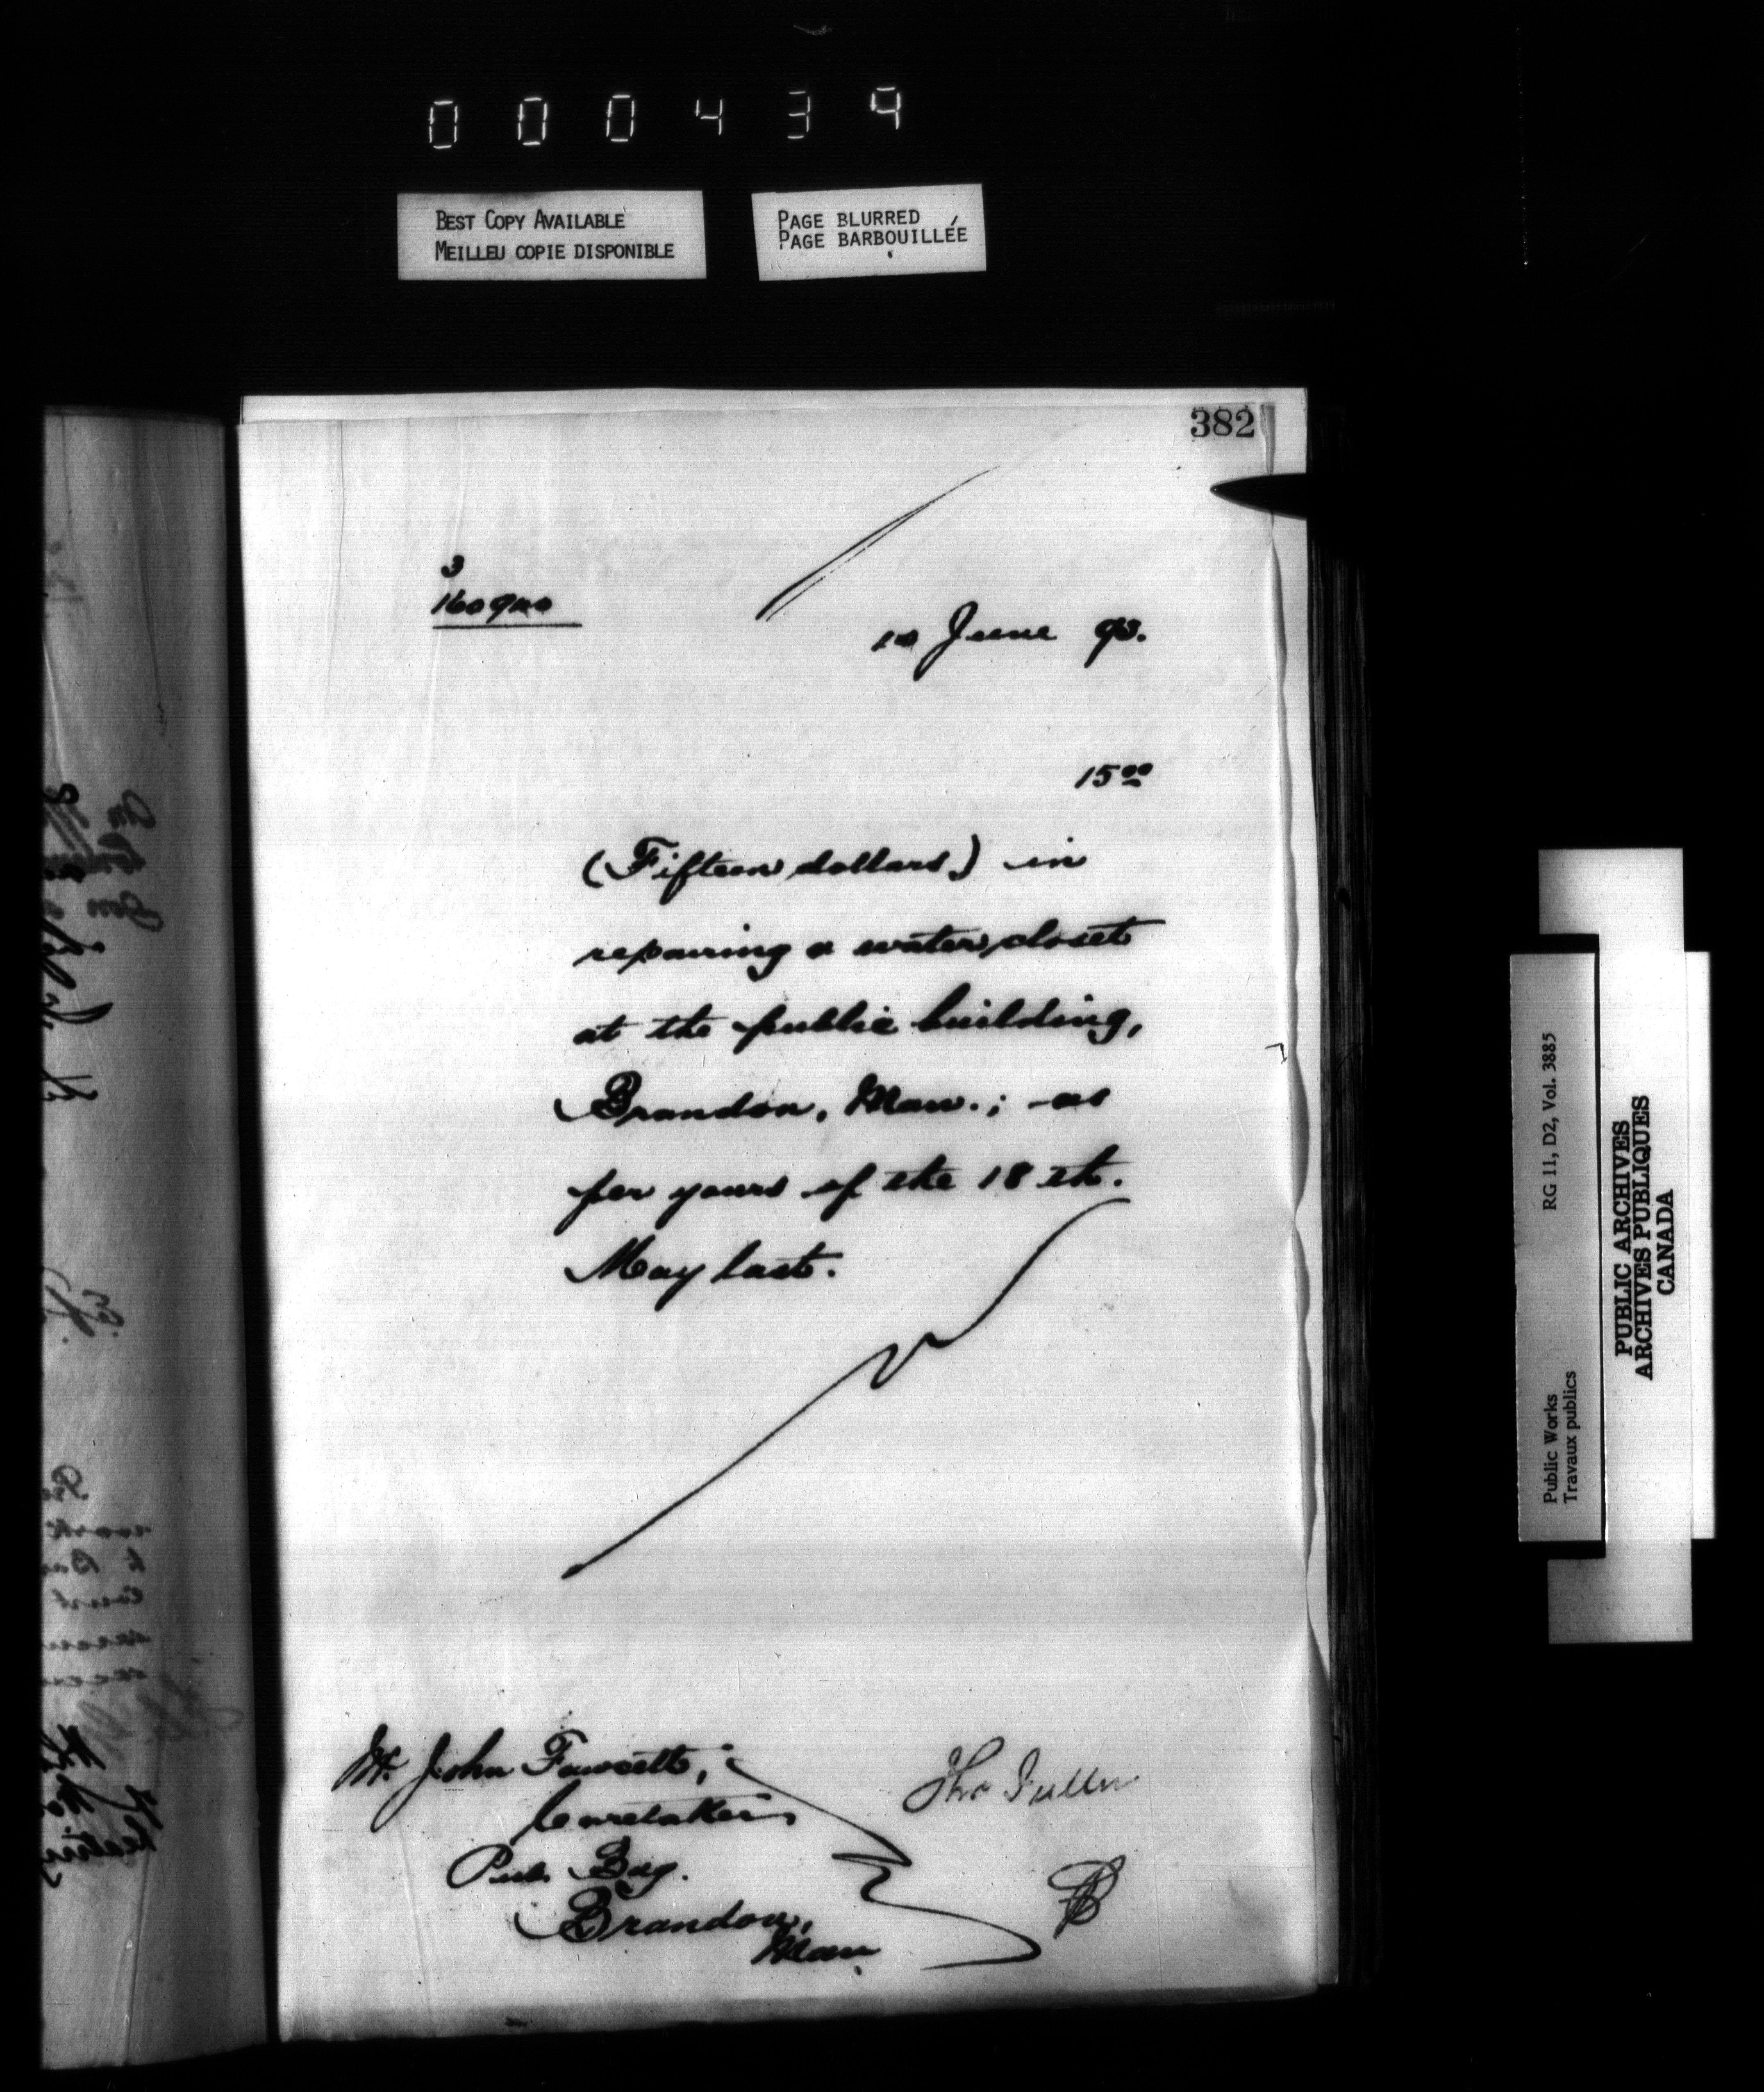 000439
BEST COPY AVAILABLE
MEILLEU COPIE DISPONIBLE
PAGE BLURRED
PAGE BARBOUILLÉE
382
3
June 93.
15 00
(Fifteen dollars) in
repairing a water closet
at the public building,
Brandon, Man.; as
per yours of the 18 th.
May last.
Mr. John Fawcett,
Caretaker
Pub. Bdg.
Brandon,
Man.
Thos Fuller
Public Works
Travaux publics
RG 11, D2, Vol. 3885
PUBLIC ARCHIVES
ARCHIVES PUBLIQUES
CANADA